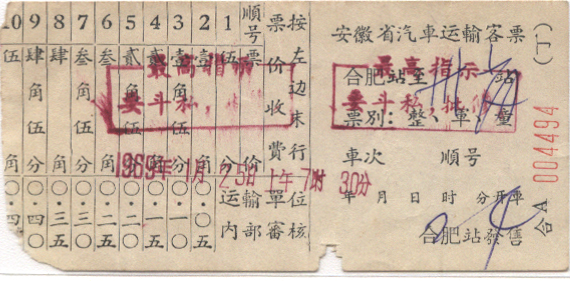 安徽省汽車运輸客票
(丁)
合肥站至 站
票別：整、單、
車次 順号
年 月 日 时 分开車
合肥站發售
合A 004494
最高指示
要斗私，批修
1969年1月25日上午7时30分
按左边末行
票价收費
順号 1 2 3 4 5 6 7 8 9 10
票價
伍分
壹角
壹角伍分
貳角
貳角伍分
叁角
叁角伍分
肆角
肆角伍分
伍角
○·○五
○·一○
○·一五
○·二○
○·二五
○·三○
○·三五
○·四○
○·四
最高指示
要斗私，